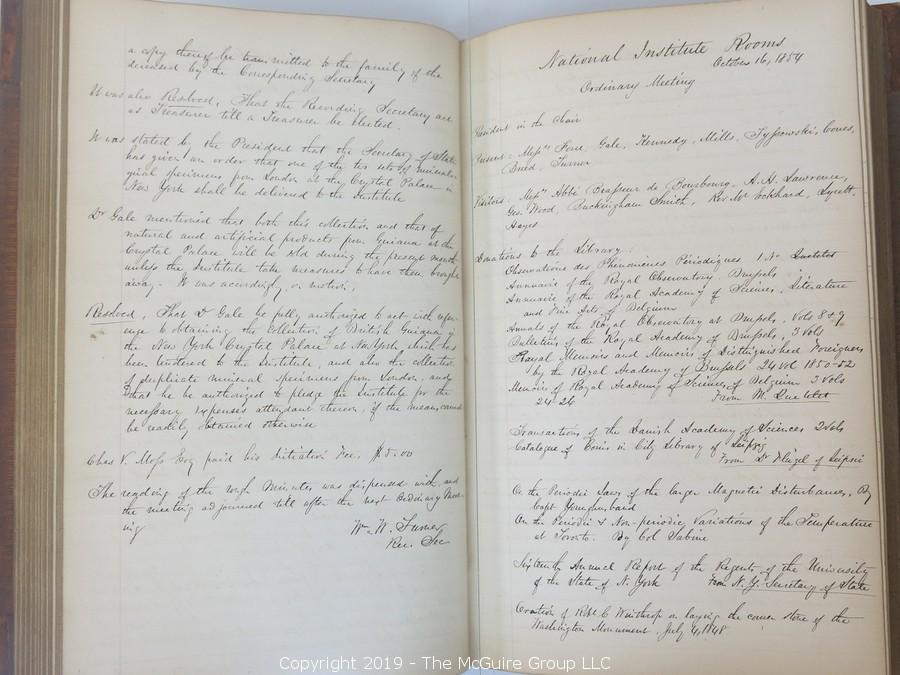 a copy thereof be transmitted to the family of the
deceased by the Corresponding Secretary
It was also Resolved, That the Recording Secretary act
as Treasurer till a Treasurer be elected.
It was stated by the President that the Secretary of State
has given an order that one of the two sets of mineral
specimens from London at the Crystal Palace in
New York shall be delivered to the Institute
Dr Gale mentioned that both this collection and that of
natural and artificial products from Guiana at the
Crystal Palace will be sold during the present month
unless the Institute take measures to have them brought
away. It was accordingly, on motion,
Resolved, That Dr Gale be fully authorized to act with refer-
ence to obtaining the collection of British Guiana in
the New York Crystal Palace at New York, which has
been tendered to the Institute, and also the collection
of duplicate mineral specimens from London, and
that he be authorized to pledge the Institute for the
necessary expenses attendant thereon, if the means cannot
be readily obtained otherwise
Chas V. Moss Esq paid his initiation Fee, $5.00
The reading of the rough Minutes was dispensed with, and
the meeting adjourned till after the next Ordinary Meet-
ing
Wm W. Turner
Rec. Sec
National Institute Rooms
October 16, 1854
Ordinary Meeting
President in the Chair
Present: Messrs Force, Gale, Kennedy, Mills, Tyssowski, Coues,
Turner
Visitors: Messrs Abbé Brasseur de Bourbourg, A. H. Lawrence,
Geo. Wood, Buckingham Smith, Rev Mr Eckhard,
Hayes
Donations to the Library:
Observations des Phénomènes Périodiques 1 No Quetelet
Annuaire of the Royal Observatory Brussels
Annuaire of the Royal Academy of Sciences, Literature
and Fine Arts of Belgium
Annals of the Royal Observatory at Brussels, Vols 8 & 9
Bulletins of the Royal Academy of Brussels, 3 Vols
Royal Memoirs and Memoirs of Distinguished Foreigners
by the Royal Academy of Brussels 24 Vol 1850-52
Memoirs of Royal Academy of Sciences of Belgium 3 Vols
24-26 From M. Quetelet
Transactions of the Danish Academy of Sciences 2 Vols
Catalogue of Coins in City Library of Leipzig
From Dr Flügel of Leipsic
On the Periodic Laws of the larger Magnetic Disturbances, By
Capt Younghusband
On the Periodic & Non-periodic Variations of the Temperature
at Toronto. By Col Sabine
Sixteenth Annual Report of the Regents of the University
of the State of N. York From N. Y. Secretary of State
Oration of Robt C Winthrop on laying the corner stone of the
Washington Monument, July 4, 1848
Copyright 2019 - The McGuire Group LLC